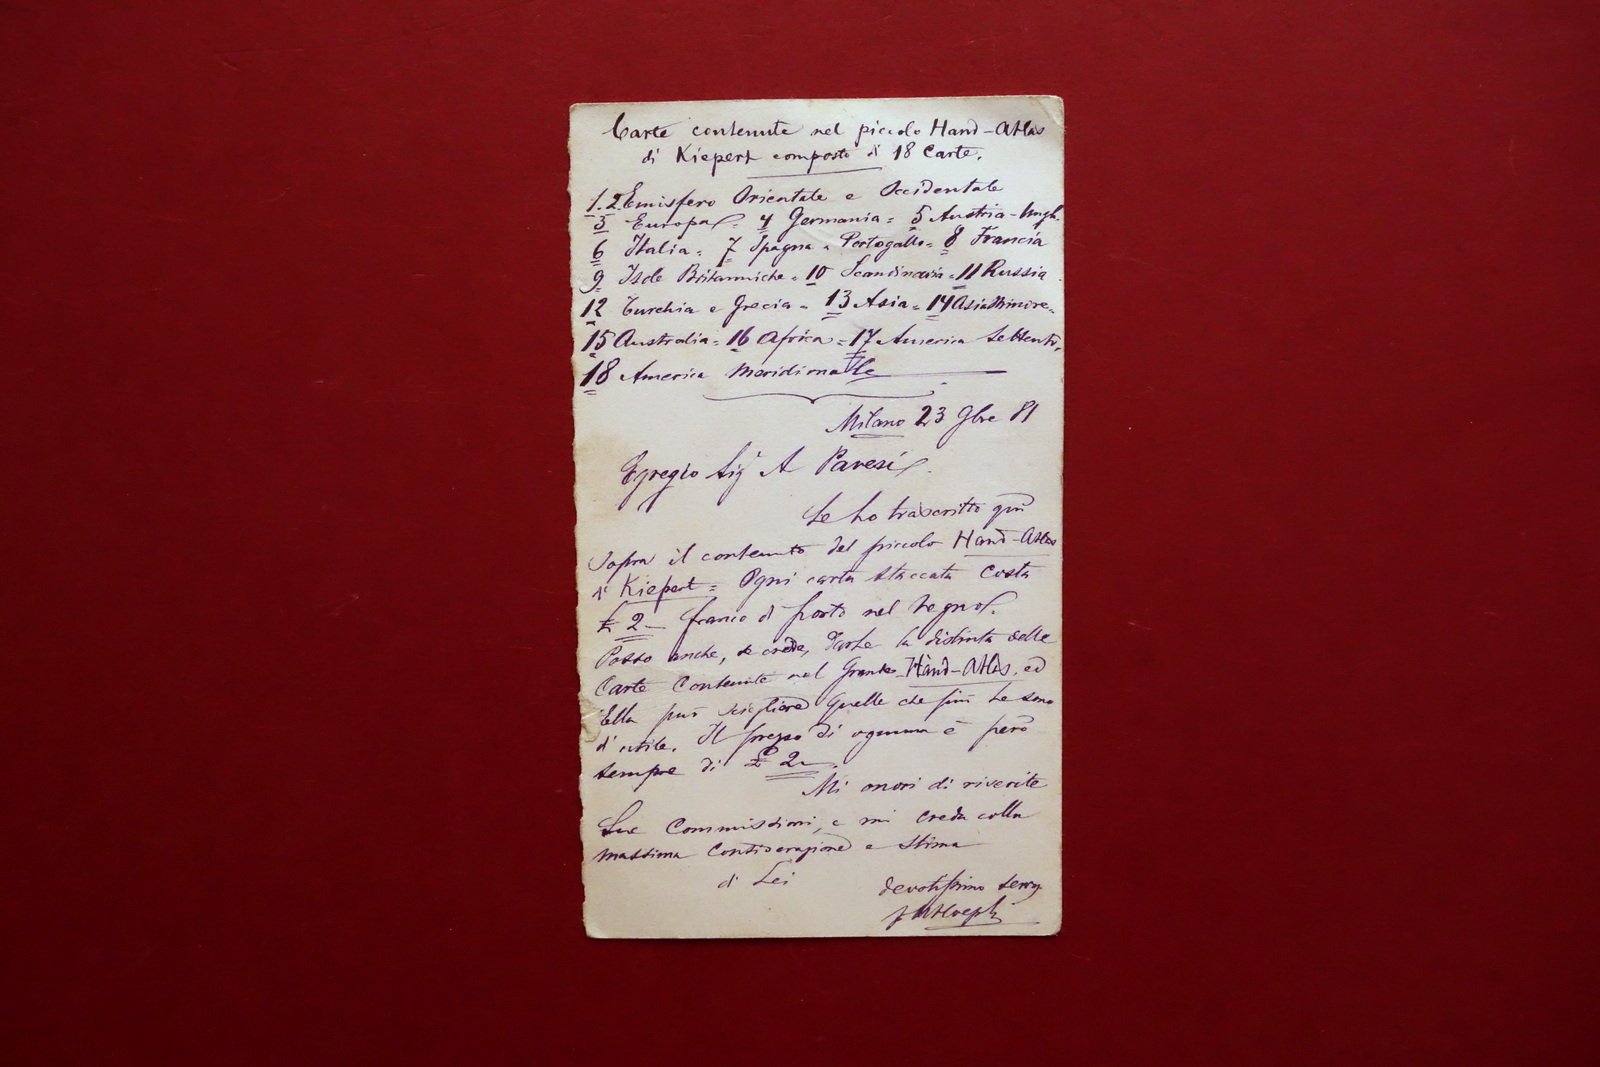 Carte contenute nel piccolo Hand-Atlas
di Kiepert composto di 18 Carte.
1.2 Emisfero Orientale e Occidentale
3 Europa = 4 Germania = 5 Austria-Ungh.
6 Italia = 7 Spagna e Portogallo = 8 Francia
9 Isole Britanniche = 10 Scandinavia = 11 Russia
12 Turchia e Grecia = 13 Asia = 14 Asia Minore =
15 Australia = 16 Africa = 17 America Settentr.
18 America Meridionale
Milano 23 9bre 81
Egregio Sigr A Pavesi
Le ho trascritto qui
sopra il contenuto del piccolo Hand-Atlas
di Kiepert = Ogni carta staccata costa
£ 2 — franco di porto nel regno.
Posso anche, se crede, farle la distinta delle
Carte Contenute nel Grande Hand-Atlas, ed
Ella può scegliere quelle che più Le sono
d'utile. Il prezzo di ognuna è però
sempre di £ 2 —.
Mi onori di riverite
Sue Commissioni, e mi creda colla
massima Considerazione e stima
di Lei
devotissimo serv.
Hoepli